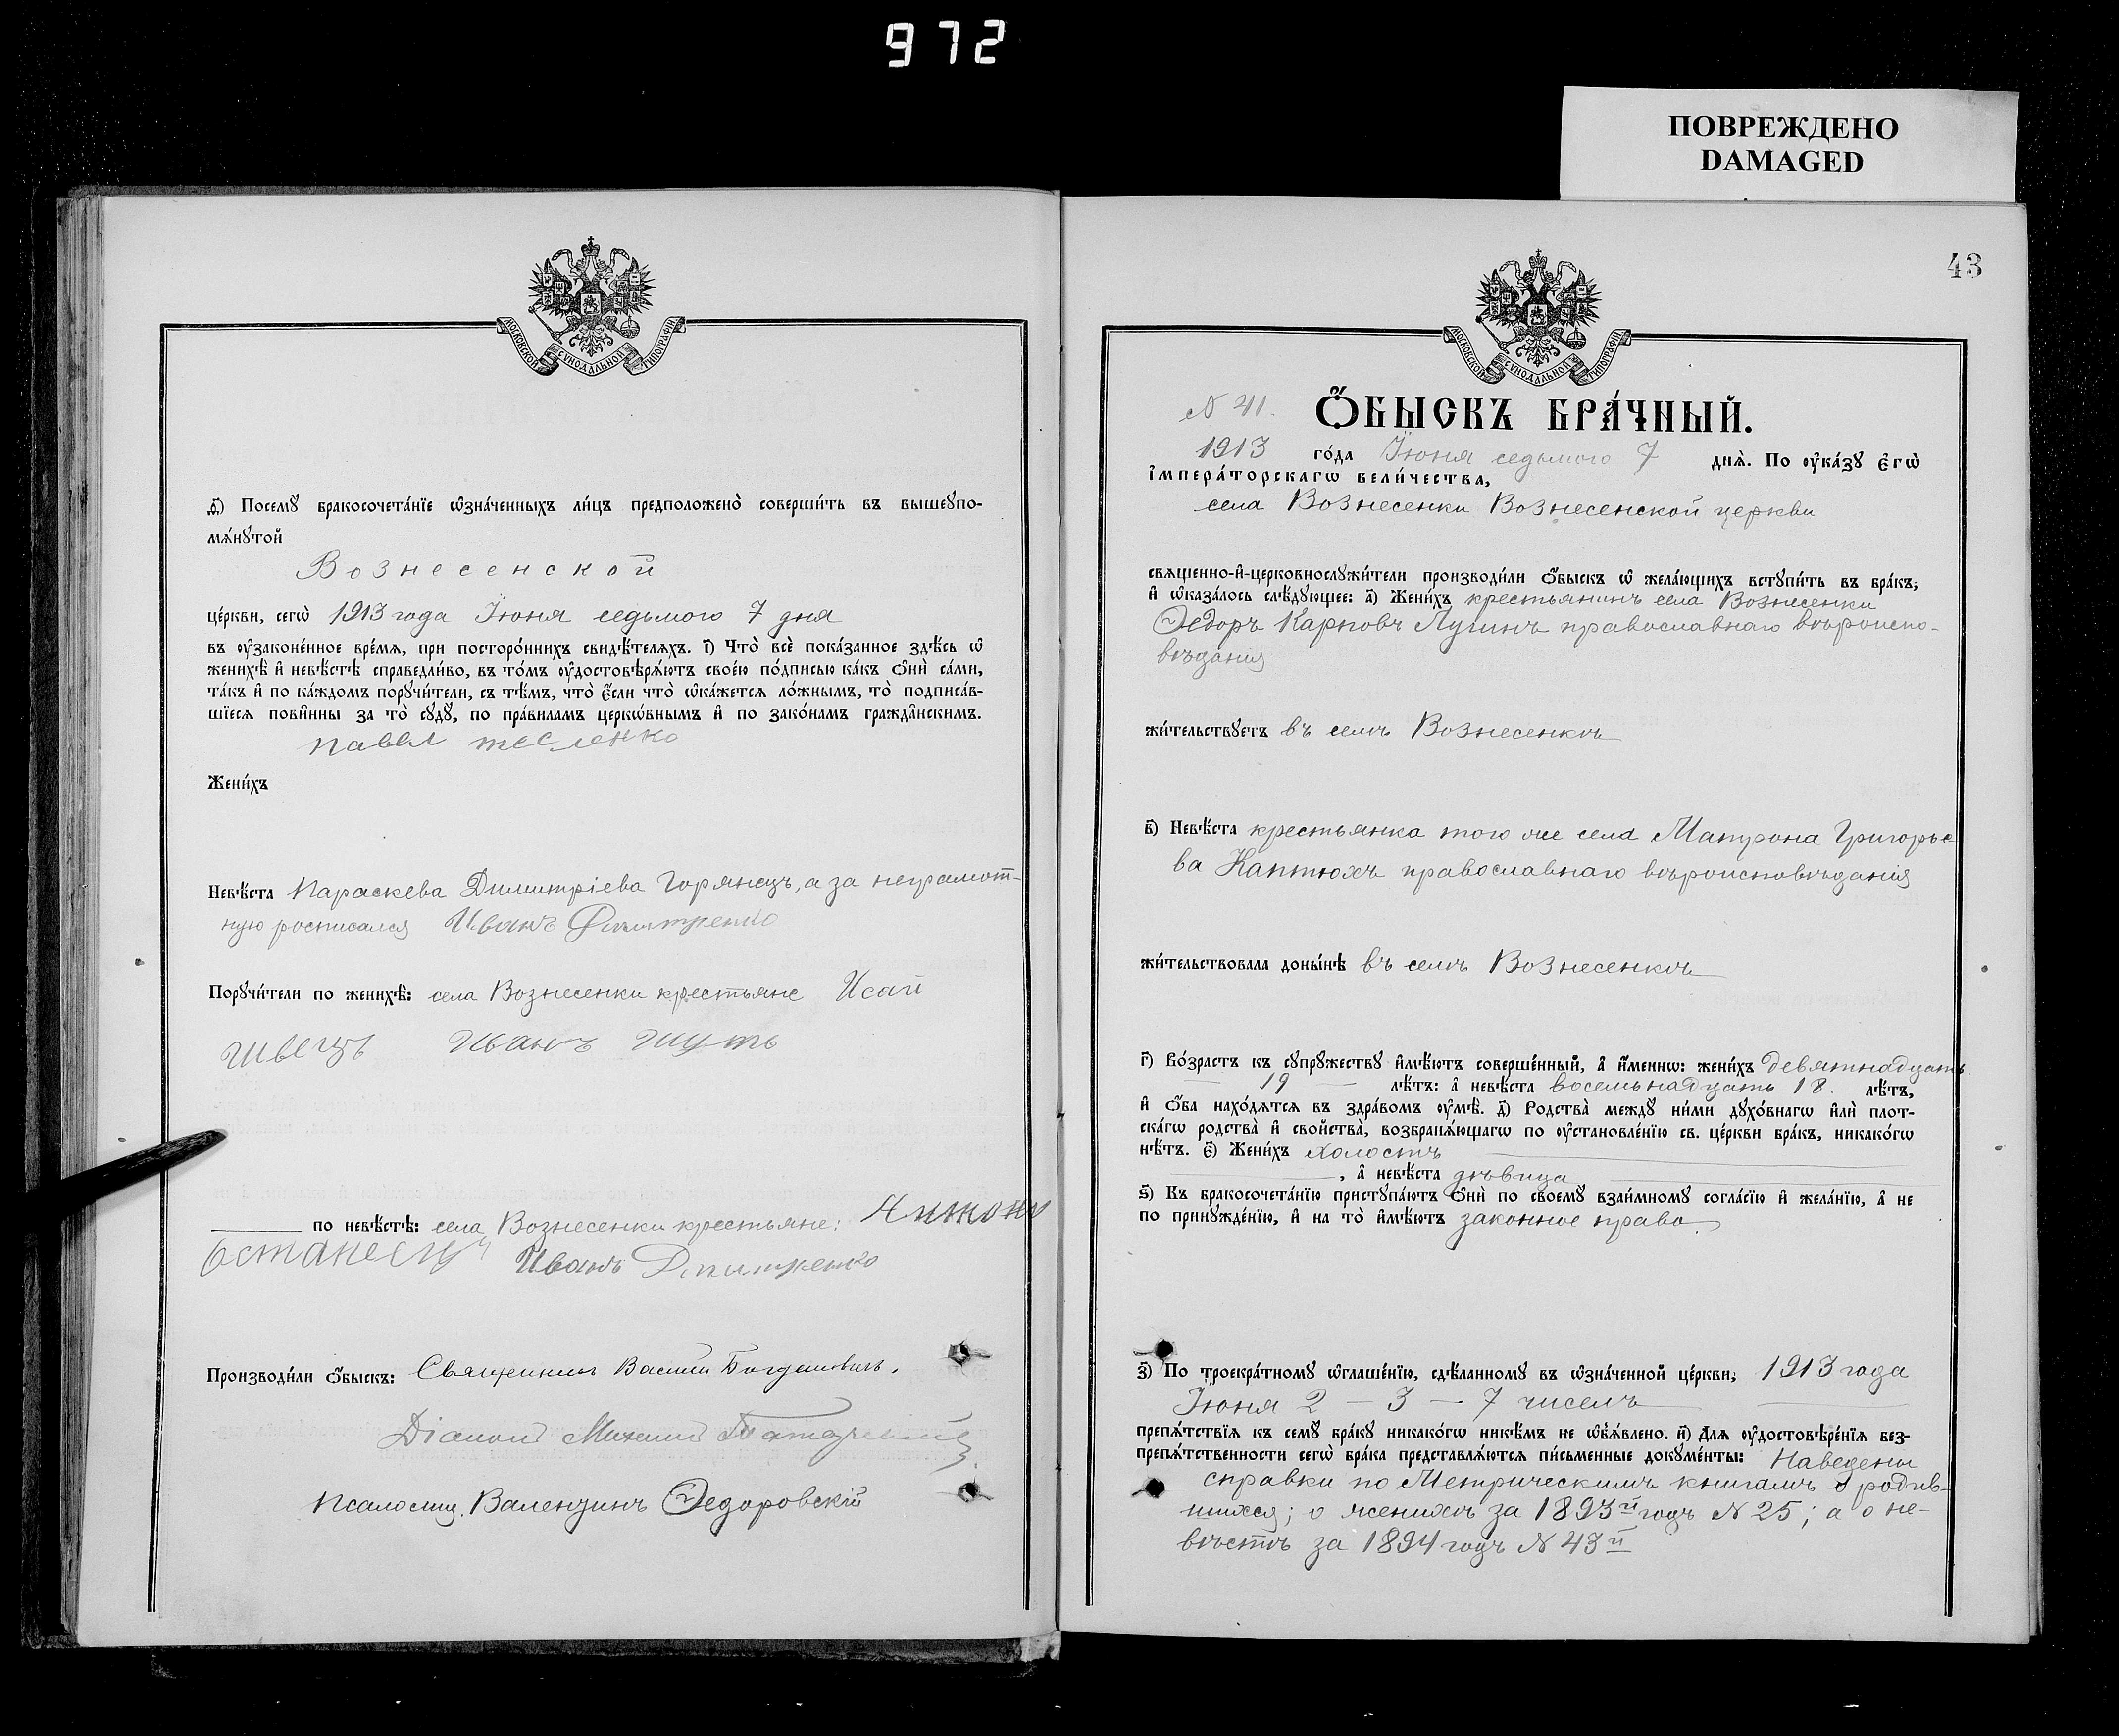 972
ПОВРЕЖДЕНО
DAMAGED
МОСКОВСКОЙ СѴНОДАЛЬНОЙ ТИПОГРАФІИ
ѳ҃) Посемꙋ бракосочета́нїе ѡ҆зна́ченныхъ ли́цъ предположено̀ соверши́ть въ вышеꙋпо-
мѧ́нꙋтой
Вознесенской
це́ркви, сегѡ̀ 1913 года Іюня седьмого 7 дня
въ ᲂу҆законе́нное вре́мѧ, при посторо́ннихъ свидѣ́телѧхъ. і҃) Что̀ всѐ пока́занное здѣ́сь ѡ҆
женихѣ̀ и҆ невѣ́стѣ справедли́во, въ то́мъ ᲂу҆достовѣрѧ́ютъ свое́ю по́дписью ка́къ ѻ҆нѝ са́ми,
та́къ и҆ по ка́ждомъ порꙋчи́тели, съ тѣ́мъ, что̀ є҆́сли что̀ ѡ҆ка́жетсѧ ло́жнымъ, то̀ подписа́в-
шїесѧ пови́нны за то̀ сꙋдꙋ̀, по пра́виламъ церкѡ́внымъ и҆ по зако́намъ гражда́нскимъ.
павел тесленко
Жени́хъ
Невѣ́ста Параскева Димитріева Горянецъ, а за неграмот-
ную росписался Иванъ Дмитренко
Порꙋчи́тели по женихѣ̀: села Вознесенки крестьяне Исай
Швецъ Иванъ Шуть
по невѣ́стѣ: села Вознесенки крестьяне: Антонъ
Остапецъ Иванъ Дмитренко
Производи́ли ѻ҆́быскъ: Священникъ Василій Богдановичъ.
Діаконъ Михаилъ
Псаломщ. Валентинъ Ѳедоровскій
43
МОСКОВСКОЙ СѴНОДАЛЬНОЙ ТИПОГРАФІИ
№ 41. Ѻ҆́БЫСКЪ БРА́ЧНЫЙ.
1913 го́да Іюня седьмого 7 днѧ̀. По ᲂу҆ка́зꙋ є҆гѡ̀
і҆мпера́торскагѡ вели́чества,
села Вознесенки Вознесенской церкви
свѧщенно-и҆-церковнослꙋжи́тели производи́ли ѻ҆́быскъ ѡ҆ жела́ющихъ встꙋпи́ть въ бра́къ;
и҆ ѡ҆каза́лось слѣ́дꙋющее: а҃) Жени́хъ крестьянинъ села Вознесенки
Ѳедоръ Карповъ Лугинъ православнаго вѣроиспо-
вѣданія
жи́тельствꙋетъ въ селѣ Вознесенкѣ
в҃) Невѣ́ста крестьянка того же села Матрона Григорье-
ва Каптюхъ православнаго вѣроисповѣданія
жи́тельствовала доны́нѣ въ селѣ Вознесенкѣ
г҃) Во́зрастъ къ сꙋпрꙋ́жествꙋ и҆мѣ́ютъ соверше́нный, а҆ и҆́меннѡ: жени́хъ девятнадцать
19 лѣ́тъ: а҆ невѣ́ста восемьнадцать 18. лѣ́тъ,
и҆ ѻ҆́ба нахо́дѧтсѧ въ здра́вомъ ᲂу҆мѣ̀. д҃) Родства̀ междꙋ ни́ми дꙋхо́внагѡ и҆лѝ плот-
ска́гѡ родства̀ и҆ свойства̀, возбранѧ́ющагѡ по ᲂу҆становле́нїю св. це́ркви бра́къ, никако́гѡ
нѣ́тъ. є҃) Жени́хъ холостъ
, а҆ невѣ́ста дѣвица
ѕ҃) Къ бракосочета́нїю пристꙋпа́ютъ ѻ҆нѝ по своемꙋ̀ взаи́мномꙋ согла́сїю и҆ жела́нїю, а҆ не
по принꙋжде́нїю, и҆ на то̀ и҆мѣ́ютъ законное право.
з҃) По троекра́тномꙋ ѡ҆глаше́нїю, сдѣ́ланномꙋ въ ѡ҆зна́ченной це́ркви; 1913 года
Іюня 2 – 3 – 7 чиселъ
препѧ́тствїѧ къ семꙋ̀ бра́кꙋ никако́гѡ никѣ́мъ не ѡ҆б̾ѧ́влено. и҃) Длѧ ᲂу҆достовѣре́нїѧ без-
препѧ́тственности сегѡ̀ бра́ка представлѧ́ютсѧ пи́сьменные докꙋме́нты: Наведены
справки по Метрическимъ книгамъ о родив-
шихся; о женихѣ за 1893й годъ № 25; а о не-
вѣстѣ за 1894 годъ № 43й